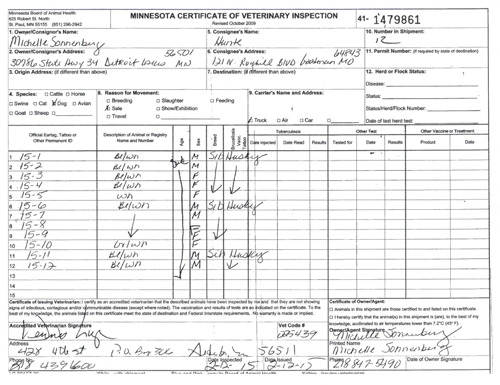 Minnesota Board of Animal Health
625 Robert St. North
St. Paul, MN 55155 (651) 296-2942
MINNESOTA CERTIFICATE OF VETERINARY INSPECTION
Revised October 2009
41- 1479861
1. Owner/Consignor's Name:
Michelle Sonnenberg
5. Consignee's Name:
Hunte
10. Number in Shipment:
12
2. Owner/Consignor's Address: 56501
30786 State Hwy 34 Detroit Lakes MN
6. Consignee's Address: 64843
121 N. Royhill BLVD Goodman MO
11. Permit Number: (if required by state of destination)
3. Origin Address: (if different than above)
7. Destination: (if different than above)
12. Herd or Flock Status:
Disease:
Status:
Status/Herd/Flock Number:
Date of last herd test:
4. Species: Cattle Horse
Swine Cat Dog Avian
Goat Sheep
8. Reason for Movement:
Breeding Slaughter Feeding
Sale Show/Exhibition
Travel
9. Carrier's Name and Address:
Truck Air Car
Official Eartag, Tattoo or Other Permanent ID
Description of Animal or Registry Name and Number
Age
Sex
Breed
Brucellosis Vacc. Tattoo
Tuberculosis
Date Injected Date Read Results
Other Test
Tested for Date Results
Other Vaccine or Treatment
Product Date
1 15-1 Bl/wh M Sib Husky
2 15-2 Bl/wh M
3 15-3 Bl/wh F
4 15-4 Bl/wh F
5 15-5 wh F
6 15-6 Bl/wh M Sib Husky
7 15-7 M
8 15-8 F
9 15-9 F
10 15-10 Gr/wh F
11 15-11 Bl/wh M Sib Husky
12 15-12 Bl/wh M
13
14
15
Certificate of Issuing Veterinarian: I certify as an accredited veterinarian that the described animals have been inspected by me and that they are not showing
signs of infectious, contagious and/or communicable disease (except where noted). The vaccination and results of tests are as indicated on the certificate. To the
best of my knowledge, the animals listed on this certificate meet the state of destination and Federal interstate requirements. No warranty is made or implied.
Certificate of Owner/Agent:
Animals in this shipment are those certified to and listed on this certificate.
I hereby certify that the animal(s) in this shipment is (are), to the best of my
knowledge, acclimated to air temperatures lower than 7.2°C (45° F).
Accredited Veterinarian Signature
Vet Code #
005439
Owner/Agent Signature
Michelle Sonnenberg
Address
428 4th St P.O. Box 306 Audubon 56511
Printed Name
Michelle Sonnenberg
Phone No.
218 439 6600
Date Inspected
2-12-15
Date Issued
2-12-15
Phone No.
218 847-5490
Date of Owner Signature